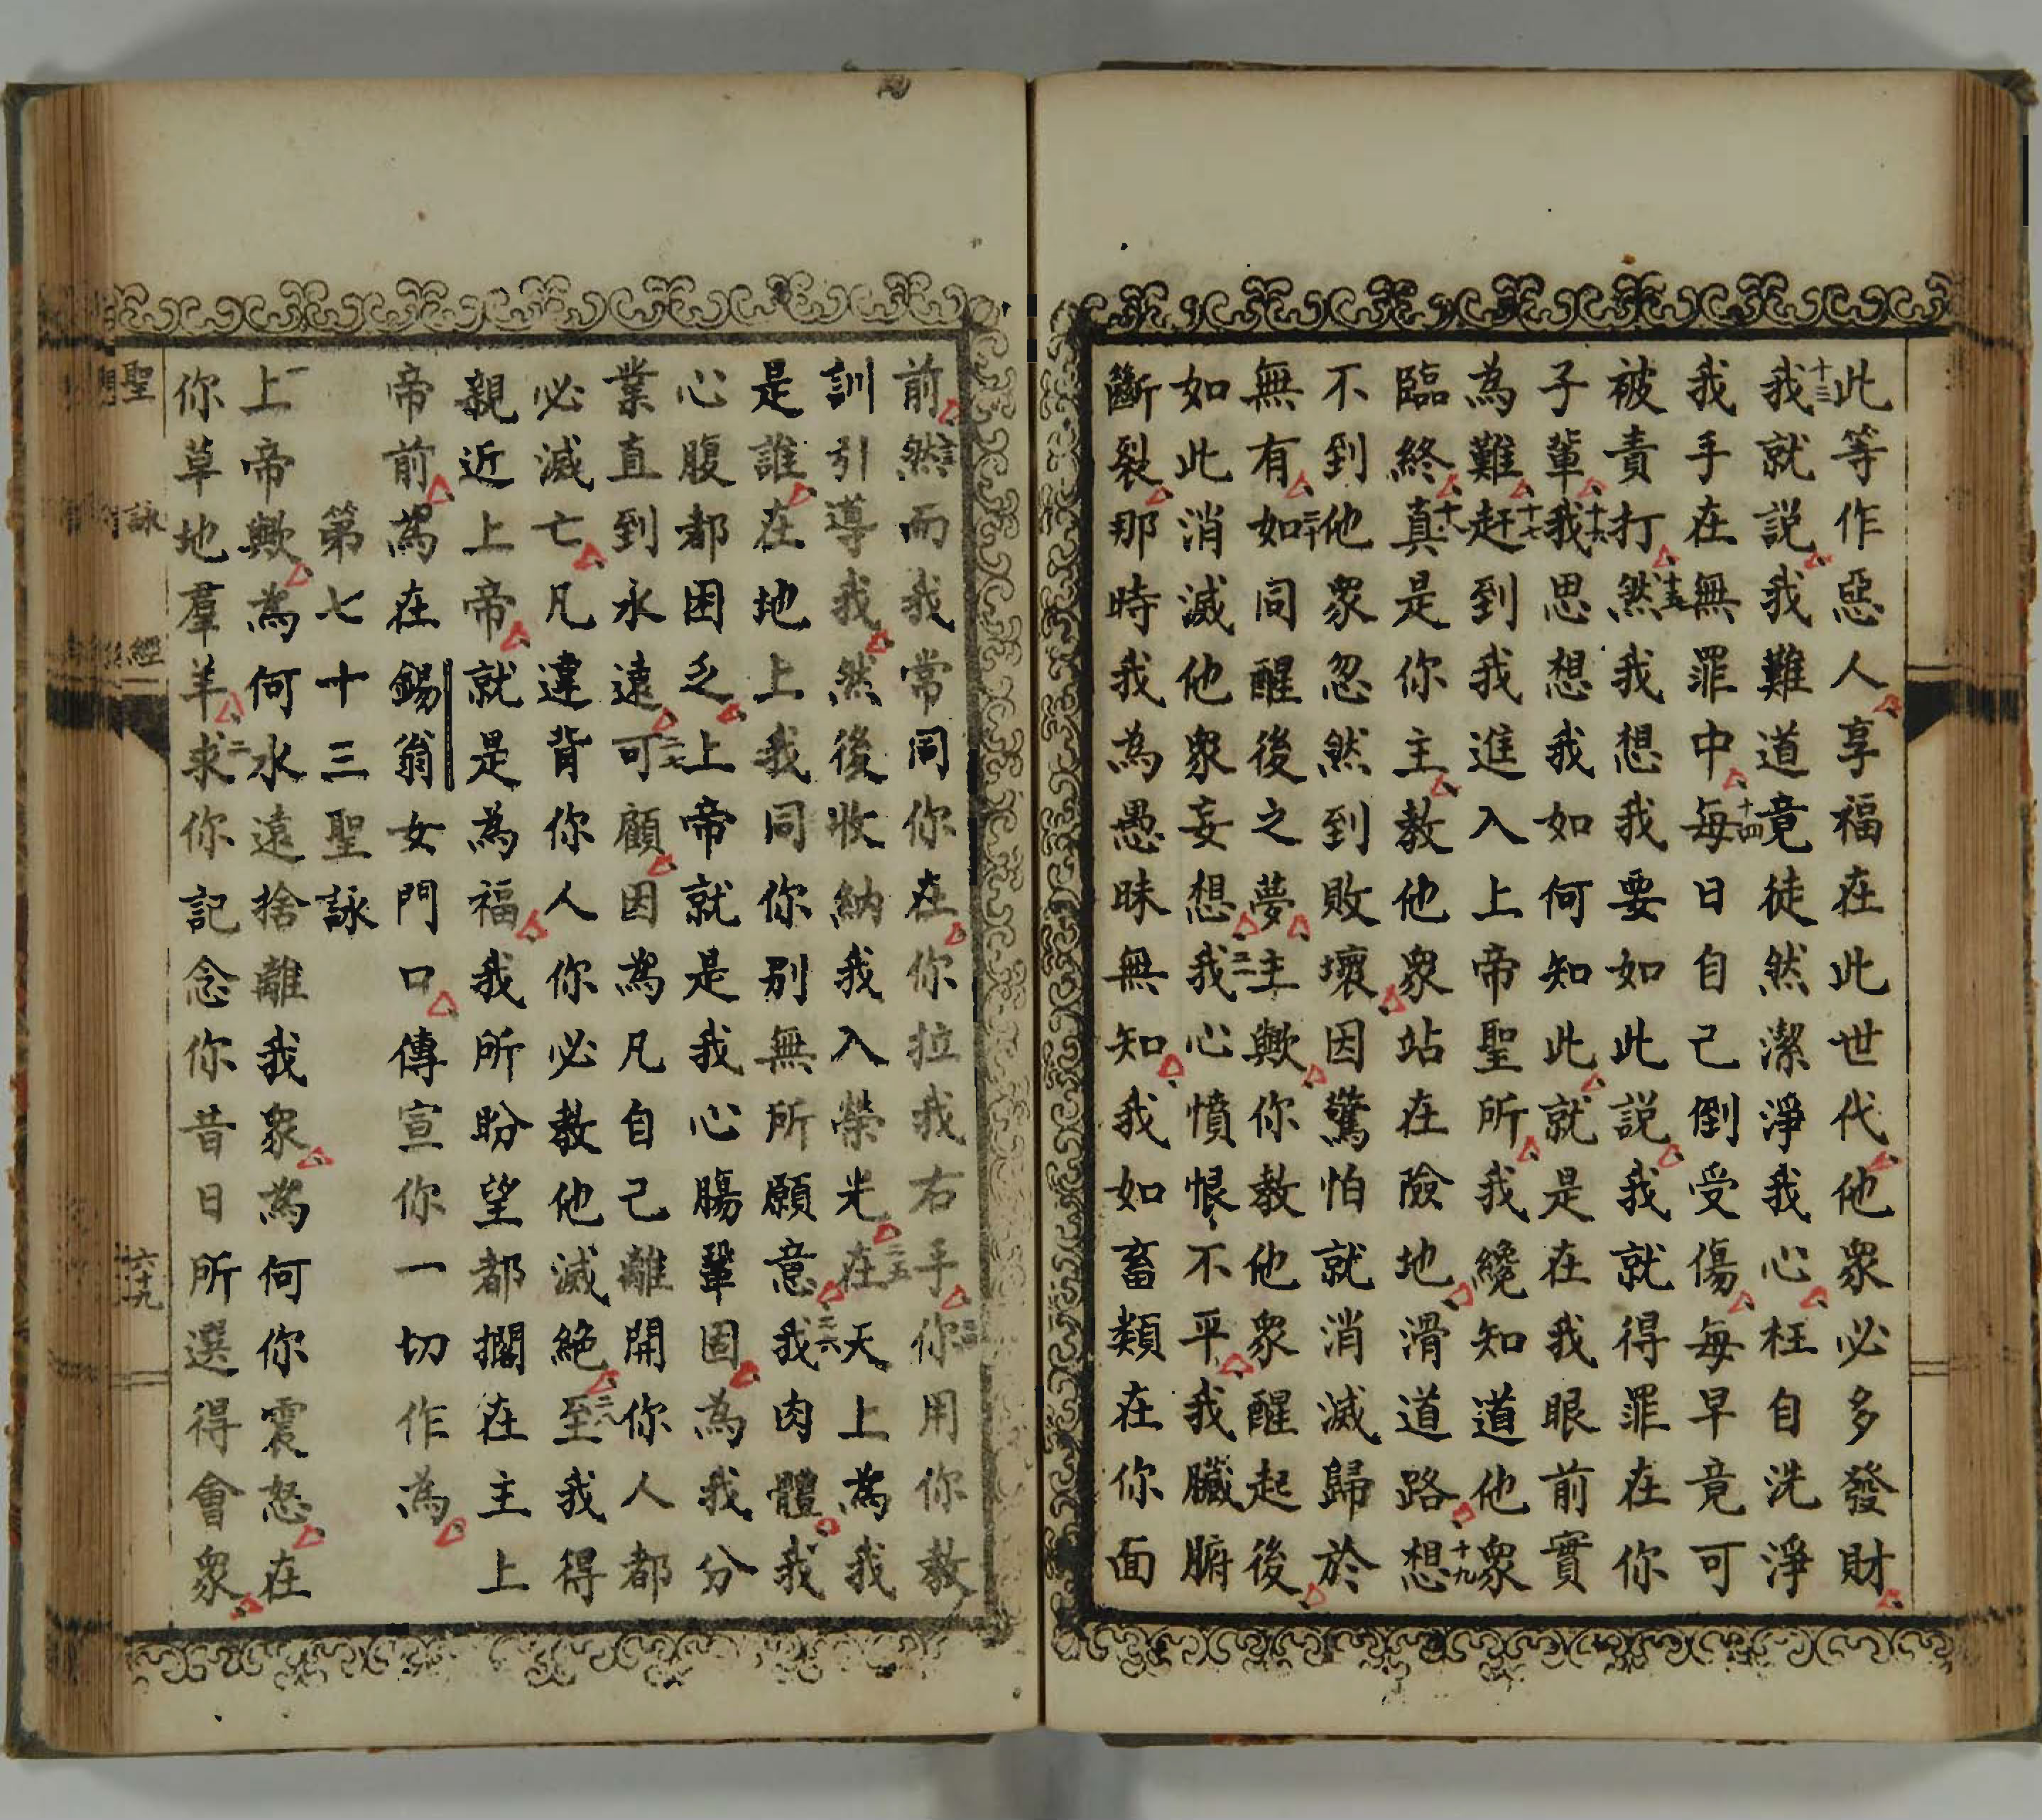 此等作惡人享福在此世代他衆必多發財
十三我就説我難道竟徒然潔淨我心枉自洗淨
我手在無罪中十四每日自己倒受傷每早竟可
被責打十五然我想我要如此説我就得罪在你
子輩十六我思想我如何知此就是在我眼前實
為難十七赶到我進入上帝聖所我纔知道他衆
臨終十八真是你主教他衆站在險地滑道路十九想
不到他衆忽然到敗壞因驚怕就消滅歸於
無有二十如同醒後之夢主歟你教他衆醒起後
如此消滅他衆妄想二一我心憤恨不平我臟腑
斷裂那時我為愚昧無知我如畜類在你面
前二三然而我常同你在你拉我右手二四你用你教
訓引導我然後收納我入榮光二五在天上為我
是誰在地上我同你別無所願意二六我肉體我
心腹都困乏上帝就是我心腸鞏固為我分
業直到永遠二七可顧因為凡自己離開你人都
必滅亡凡違背你人你必教他滅絶二八至我得
親近上帝就是為福我所盼望都擱在主上
帝前為在錫翁女門口傳宣你一切作為
第七十三聖詠
一上帝歟為何永遠捨離我衆為何你震怒在
你草地羣羊二求你記念你昔日所選得會衆
聖詠經
六十九